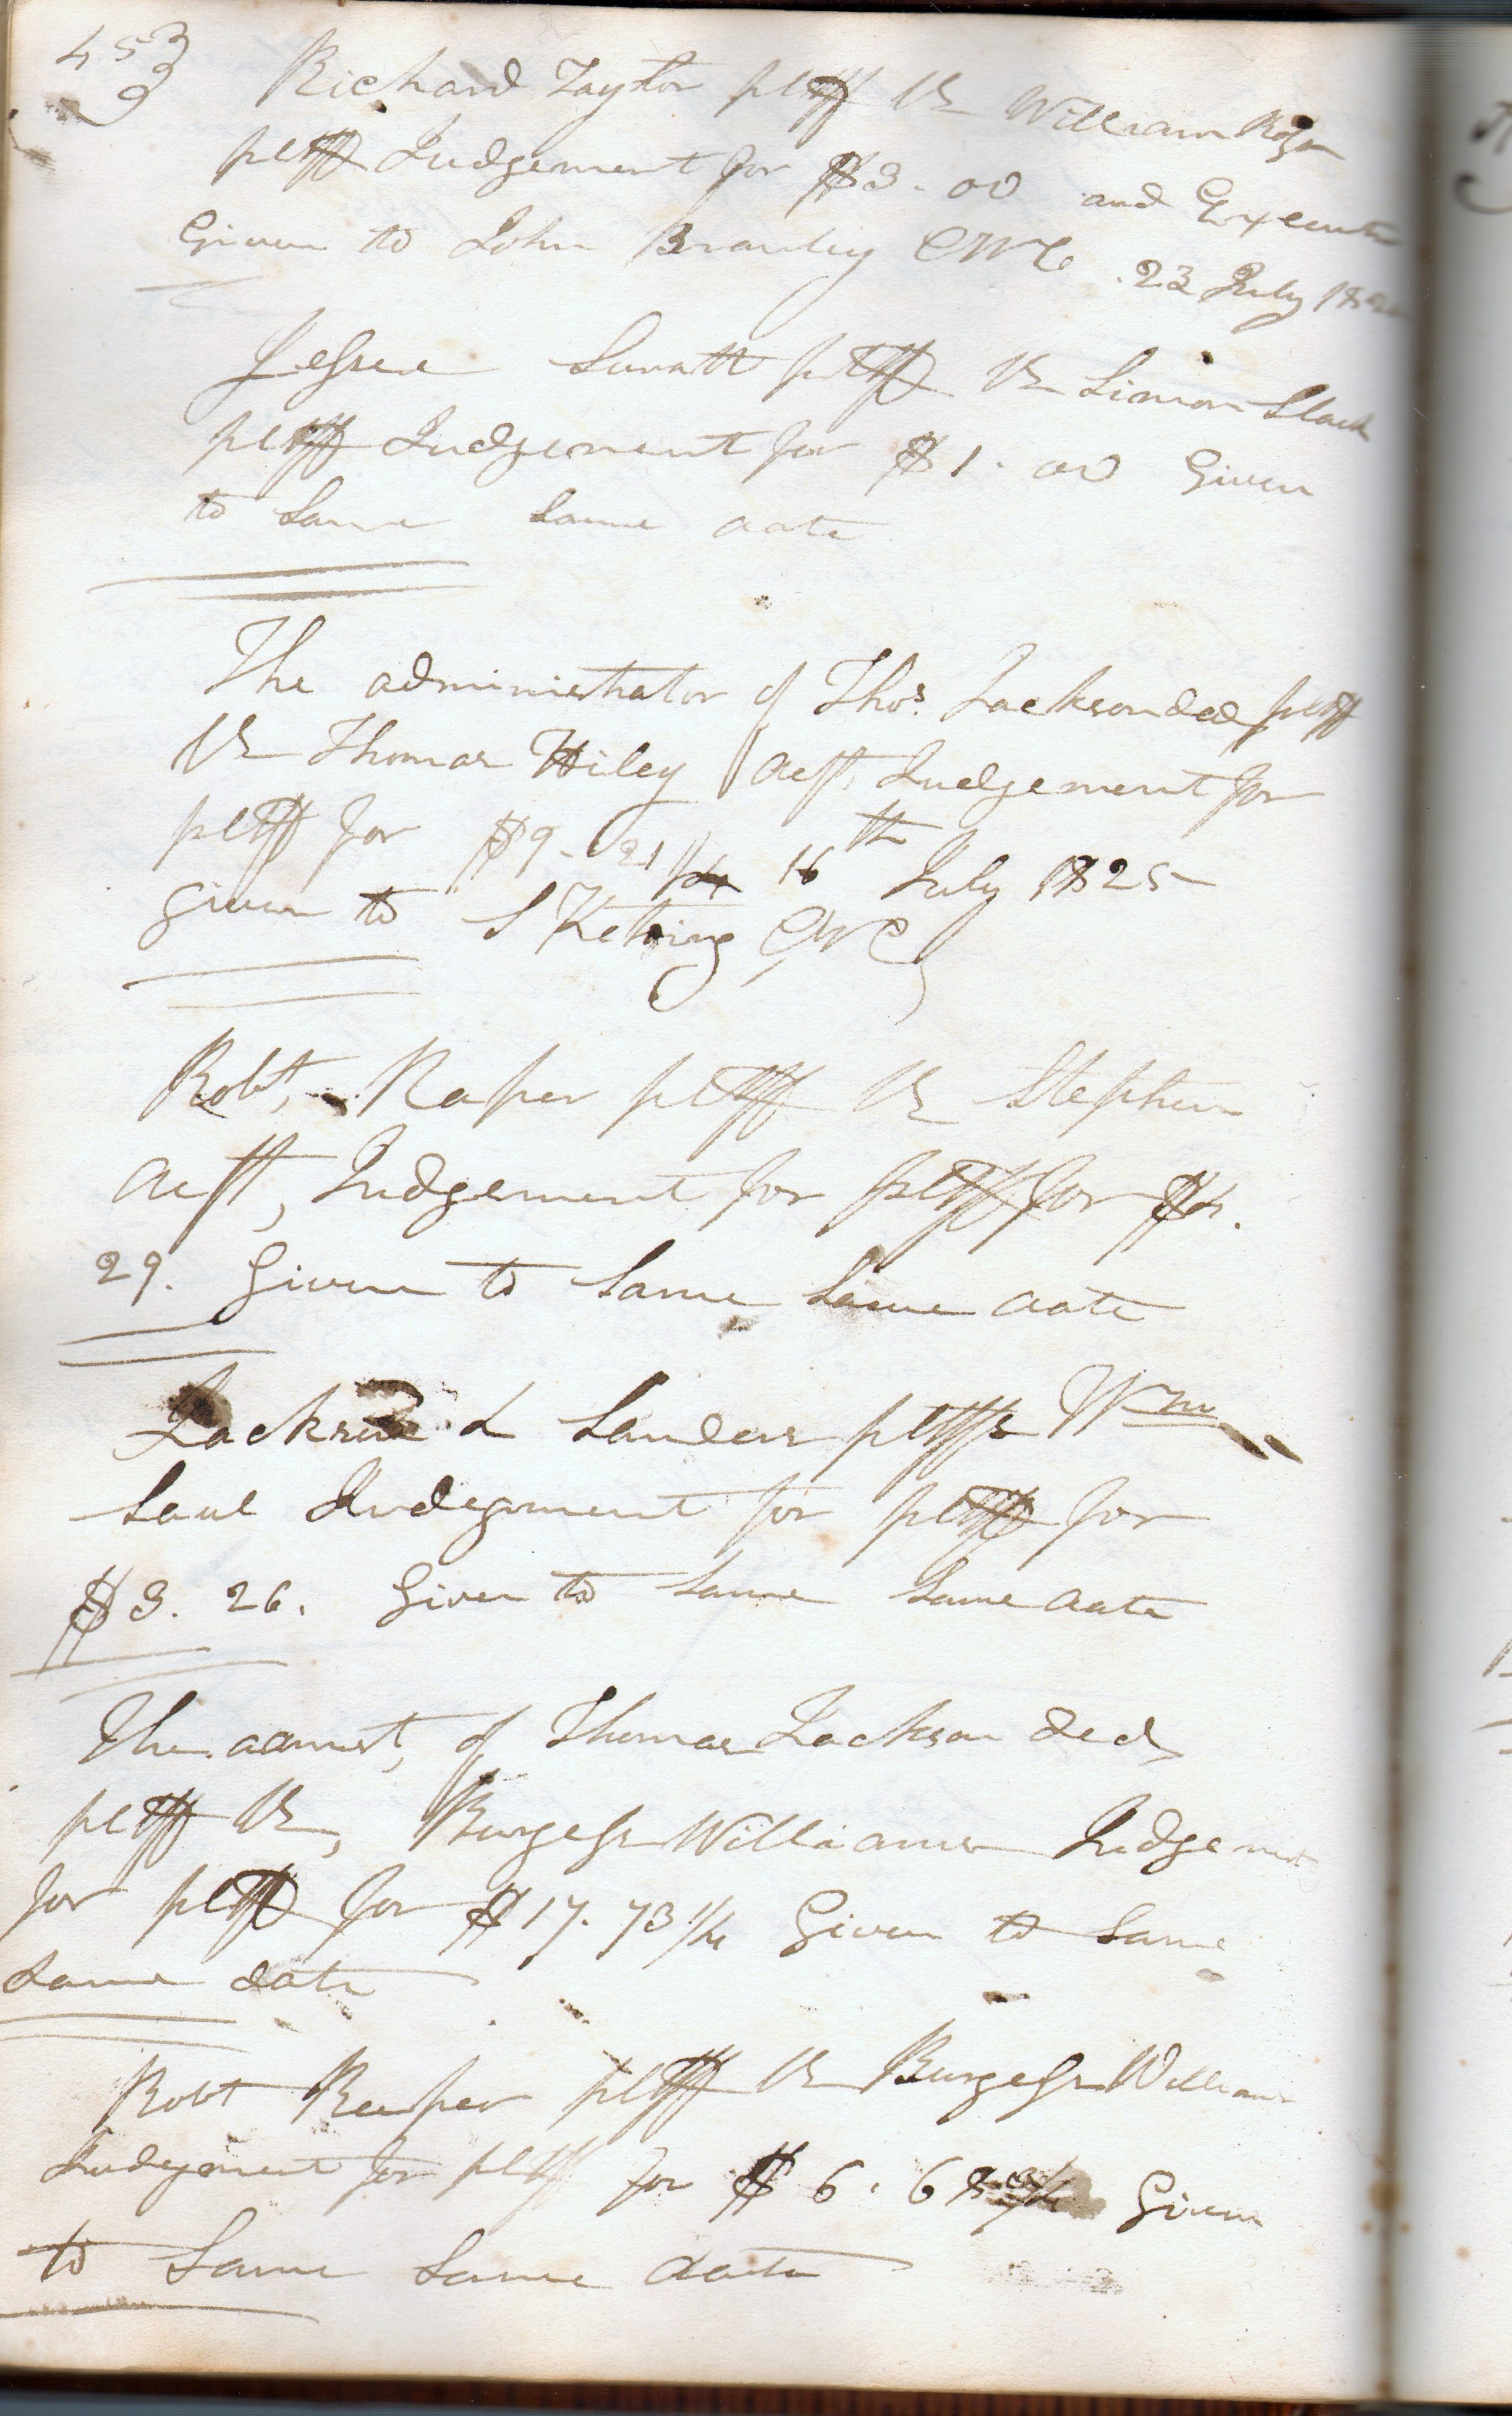 453
9
Richard Taylor pltff Vs William
pltff Judgement for $3.00 and Execution
Given to John Branley 23 July 182
Jessee Suratt pltff Vs Simon Slack
pltff Judgement for $1.00 Given
to Same Same date
The administrator of Thos. Jackson decd pltff
Vs Thomas Wiley deft, Judgement for
pltff for $9.21 1/4 16th July 1825
given to S
Robt, Raper pltff Vs Stephen
deft, Judgement for pltff for $4.
29. Given to Same Same date
Jackson & Sanders pltffs Wm
Saul Judgement for pltff for
$3.26. Given to Same Same date
The admnst, of Thomas Jackson decd
pltff Vs, Burgess Williams Judgement
for pltff for $17.73 1/4 Given to Same
Same date
Robt Reeper pltff Vs Burgess Williams
Judgement for pltff for $6.68 3/4 Given
to Same Same date